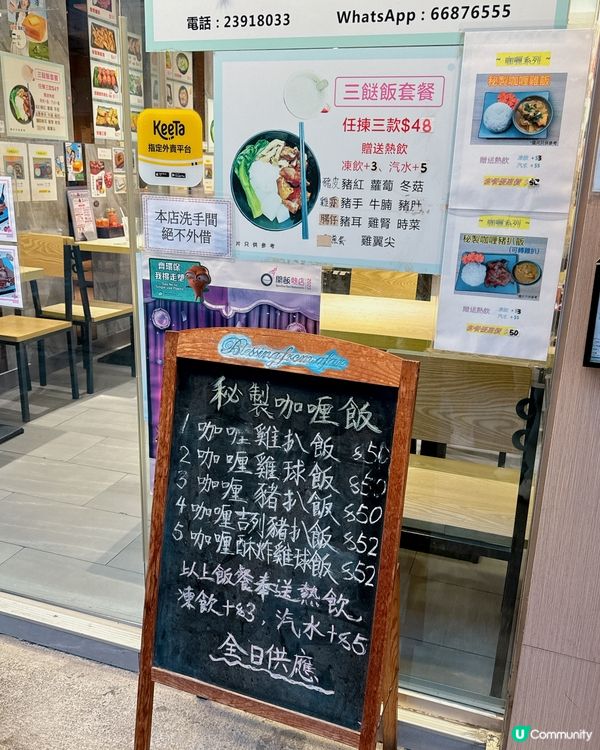 電話：23918033 WhatsApp : 66876555
KeeTa
指定外賣平台
本店洗手間
絕不外借
三餸飯套餐
任揀三款$48
贈送熱飲
凍飲+3、汽水+5
豬紅 蘿蔔 冬菇
豬手 牛腩 豬肚
豬耳 雞腎 時菜
雞翼尖
片只供參考
咖喱系列
秘製咖喱雞飯
贈送熱飲
咖喱系列
秘製咖喱豬扒飯
(可轉雞扒)
贈送熱飲
凍飲 +$3
汽水 +$5
套餐優惠價 $50
齊環保
我撐走塑
開飯熱店
秘製咖喱飯
1 咖喱雞扒飯 $50
2 咖喱雞球飯 $50
3 咖喱豬扒飯 $50
4 咖喱吉列豬扒飯 $52
5 咖喱酥炸雞球飯 $52
以上飯餐奉送熱飲
凍飲+$3，汽水+$5
全日供應
三餸飯套餐
U Community